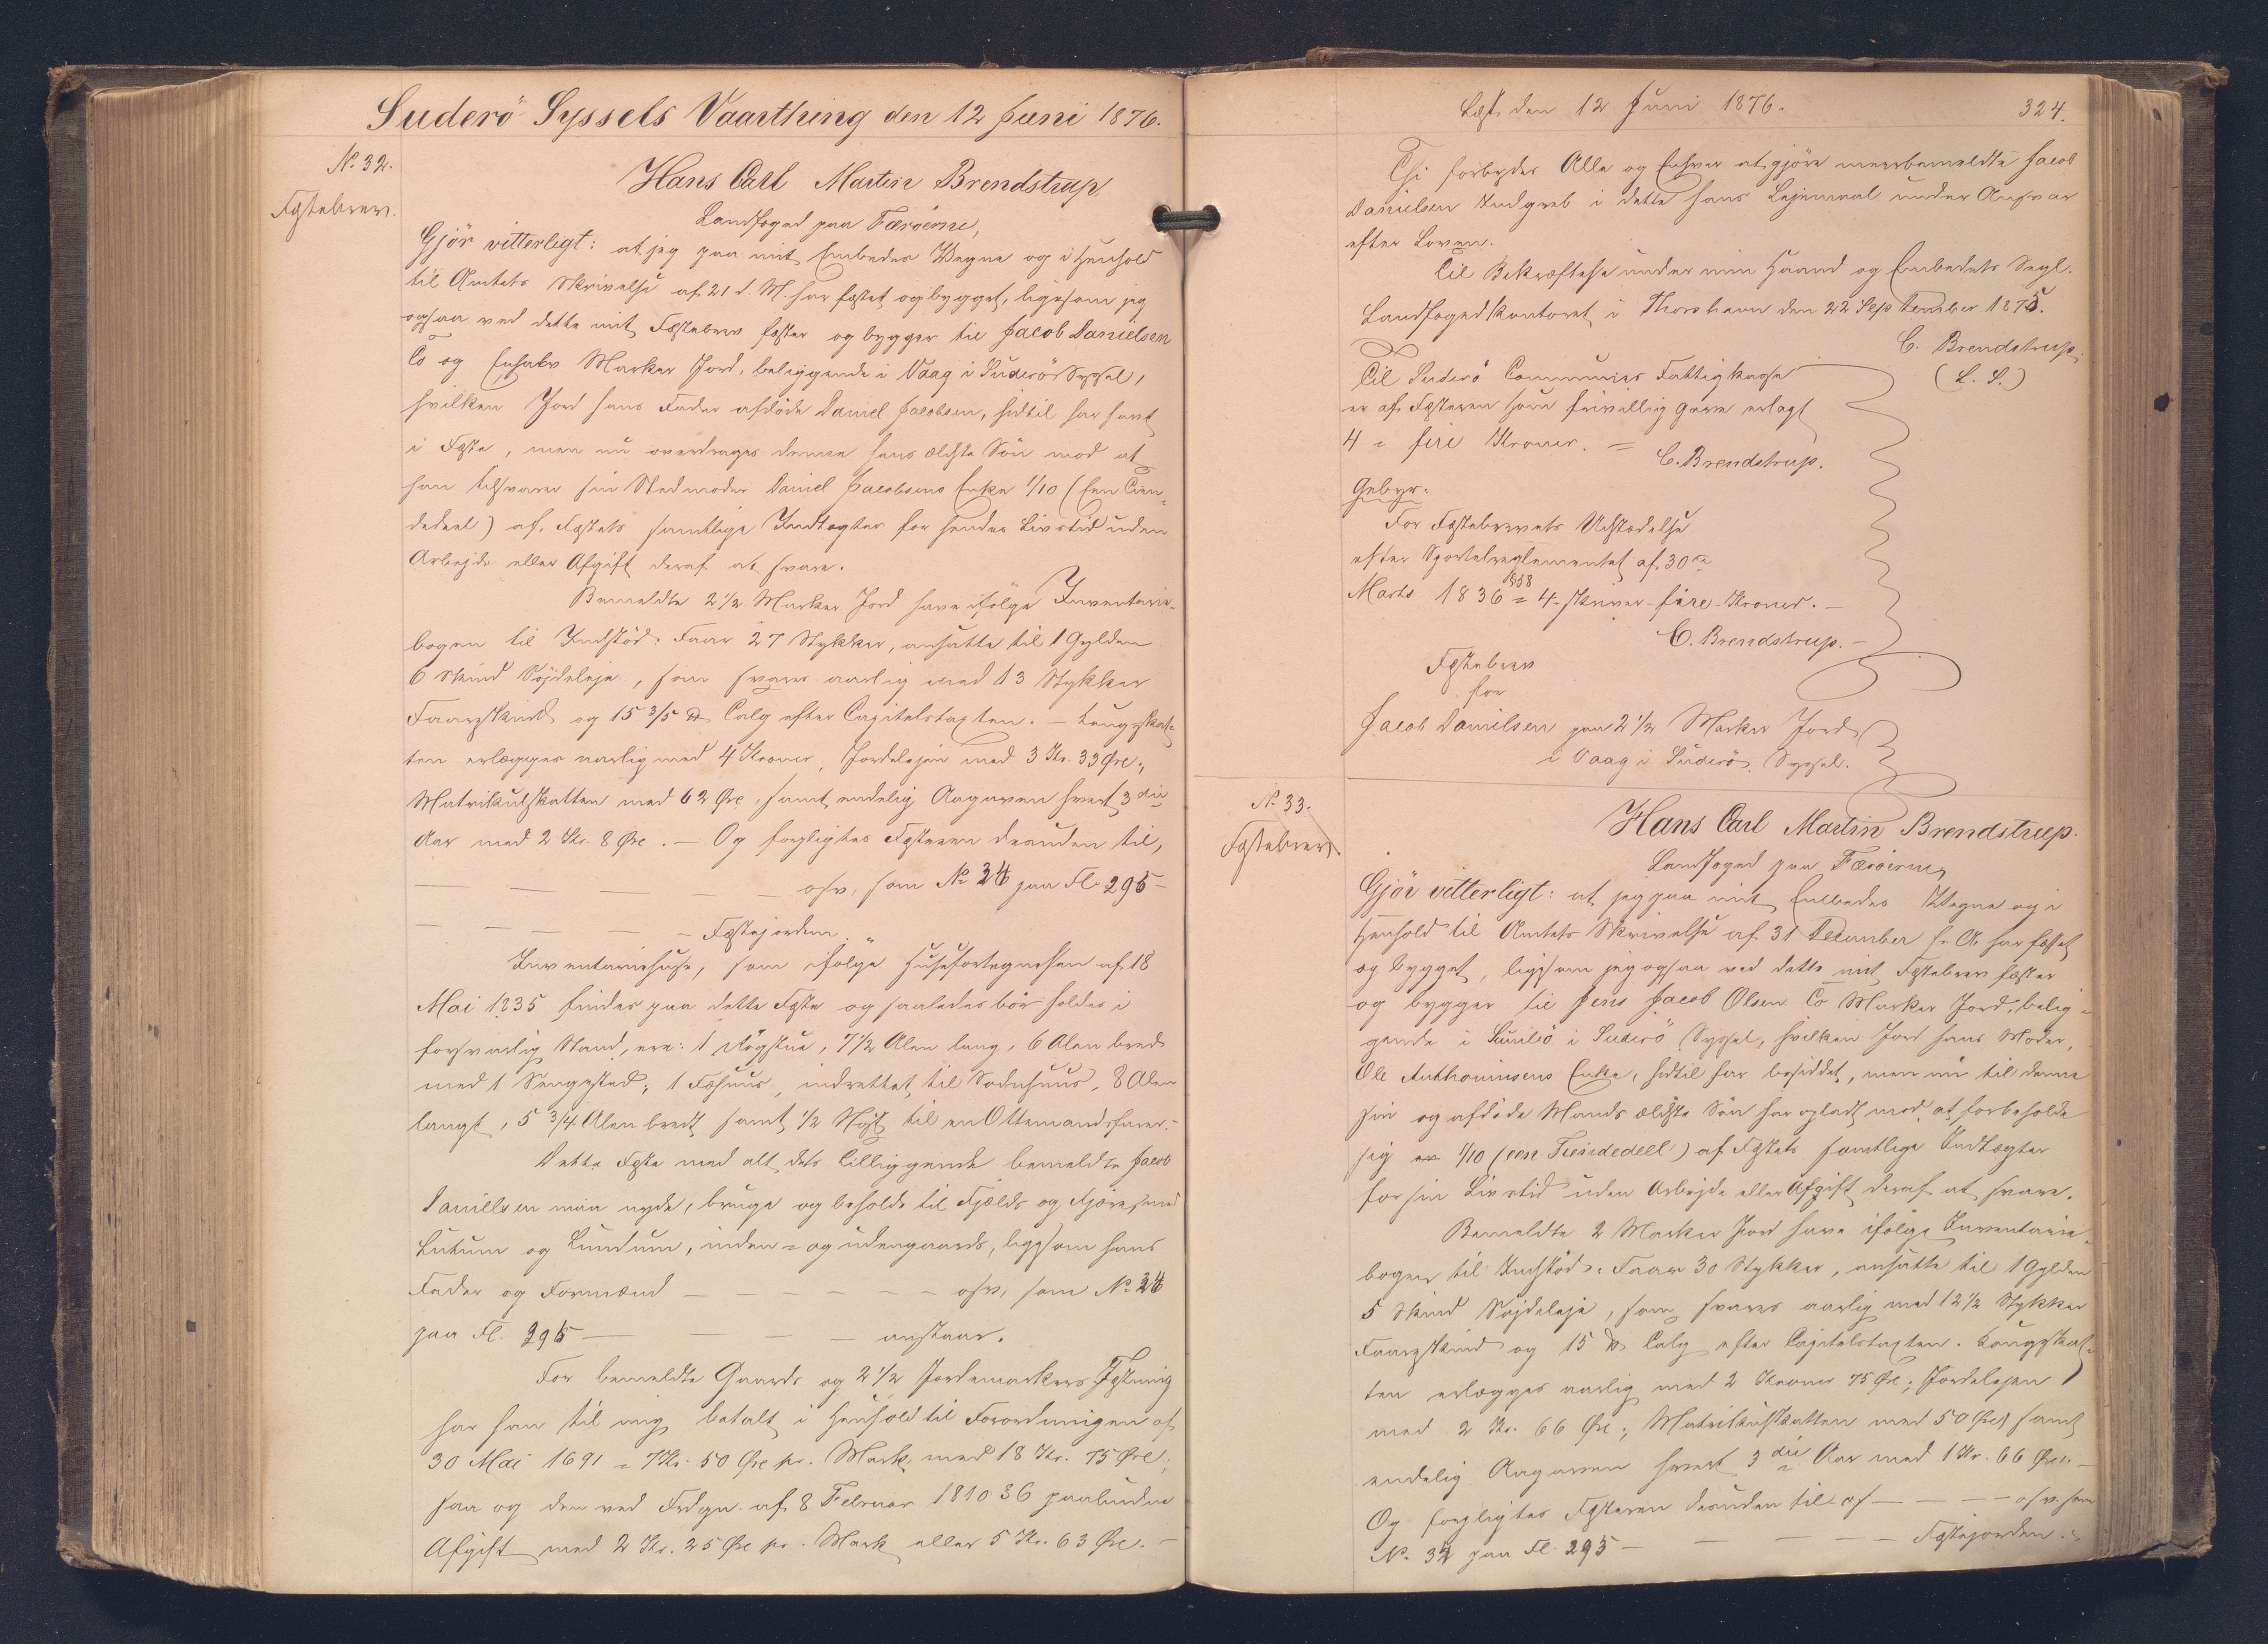 Suderö Syssels Vaarthing den 12 Juni 1876.
No 32.
Fæstebrev.
Hans Carl Martin Brendstrup
Landfoged paa Færöerne,
Gjör vitterligt: at jeg paa mit Embedes Vegne og i Henhold
til Amtets Skrivelse af 21 d. M. har fæstet og bygget, ligesom jeg
ogsaa ved dette mit Fæstebrev fæster og bygger til Jacob Danielsen
To og Enhalv Marker Jord, beliggende i Vaag i Suderö Syssel,
hvilken Jord hans Fader afdöde Daniel Jacobsen, hidtil har havt
i Fæste, men nu overdrages denne hans ældste Sön mod at
han tilsvarer sin Stedmoder Daniel Jacobsens Enke 1/10 (Een Tien-
dedeel) af Fæstets samtlige Indtægter for hendes Livstid uden
Arbejde eller Afgift deraf at svare.
Bemeldte 2 1/2 Marker Jord have ifölge Inventarie-
bogen til Indstöd: Faar 27 Stykker, ansatte til 1 Gylden
6 Skind Söjdeleje, som svares aarlig med 13 Stykker
Faareskind og 15 3/5 ℔ Talg efter Capitelstaxten. – Kongsskat-
ten erlægges aarlig med 4 Kroner, Jordelejen med 3 Kr. 33 Øre;
Matrikulskatten med 62 Øre, samt endelig Aagaven hvert 3die
Aar med 2 Kr. 8 Øre. – Og forpligtes Fæsteren desuden til,
— — — — osv. som No 24 paa Fl. 295 –
— — — — — Fæstejorden.
Inventariehuse, som ifölge Husefortegnelsen af 18
Mai 1835 findes paa dette Fæste og saaledes bör holdes i
forsvarlig Stand, ere: 1 Rögstue, 7 1/2 Alen lang, 6 Alen bred
med 1 Sengested; 1 Fæhuus, indrettet til Sodnhuus, 8 Alen
langt, 5 3/4 Alen bredt samt 1/2 Nöst til en Ottemandsfarer. –
Dette Fæste med alt dets Tilliggende bemeldte Jacob
Danielsen maa nyde, bruge og beholde til Fjelds og Fjære, med
Lutum og Lundum, inden- og udengaards, ligesom hans
Fader og Formænd — — — — — — osv. som No 24
paa Fl. 295 — — — — anstaar.
For bemeldte Gaards og 2 1/2 Jordemarkers Fæstning
har han til mig betalt i Henhold til Forordningen af
30 Mai 1691 = 7 Kr. 50 Øre pr. Mark, med 18 Kr. 75 Øre;
saa og den ved Frdgn. af 8 Februar 1810 § 36 paabudne
Afgift med 2 Kr. 25 Øre pr. Mark eller 5 Kr. 63 Øre. –
Læst den 12 Juni 1876.
324.
Thi forbydes Alle og Enhver at gjöre meerbemeldte Jacob
Danielsen Indgreb i dette hans Lejemaal under Ansvar
efter Loven.
Til Bekræftelse under min Haand og Embedets Segl.
Landfogedkontoret i Thorshavn den 22 September 1875.
C. Brendstrup.
(L. S.)
Til Suderö Communes Fattigkasse
er af Fæsteren som frivillig Gave erlagt
4 = fire Kroner. =
C. Brendstrup.
Gebyr.
For Fæstebrevets Udstædelse
efter Sportelreglementet af 30te
Marts 1836 § 58 = 4 Kroner - fire Kroner. –
C. Brendstrup. –
Fæstebrev
for
Jacob Danielsen paa 2 1/2 Marker Jord
i Vaag i Suderö Syssel.
No 33.
Fæstebrev.
Hans Carl Martin Brendstrup.
Landfoged paa Færöerne,
Gjör vitterligt: at jeg paa mit Embedes Vegne og i
Henhold til Amtets Skrivelse af 31 December f. A. har fæstet
og bygget, ligesom jeg ogsaa ved dette mit Fæstebrev fæster
og bygger til Jens Jacob Olsen To Marker Jord, belig-
gende i Sumbö i Suderö Syssel, hvilken Jord hans Moder,
Ole Anthoniusens Enke, hidtil har besiddet, men nu til denne
sin og afdöde Mands ældste Sön har opladt mod at forbeholde
sig 1/10 (een Tiendedeel) af Fæstets samtlige Indtægter
for sin Livstid uden Arbejde eller Afgift deraf at svare.
Bemeldte 2 Marker Jord have ifölge Inventarie-
bogen til Indstöd: Faar 30 Stykker, ansatte til 1 Gylden
5 Skind Söjdeleje, som svares aarlig med 12 1/2 Stykker
Faareskind og 15 ℔ Talg efter Capitelstaxten. Kongsskat-
ten erlægges aarlig med 2 Kroner 75 Øre; Jordelejen
med 2 Kr. 66 Øre; Matrikulskatten med 50 Øre, samt
endelig Aagaven hvert 3die Aar med 1 Kr. 66 Øre. –
Og forpligtes Fæsteren desuden til — — — osv. som
No 32 paa Fl. 295 — — — Fæstejorden. –